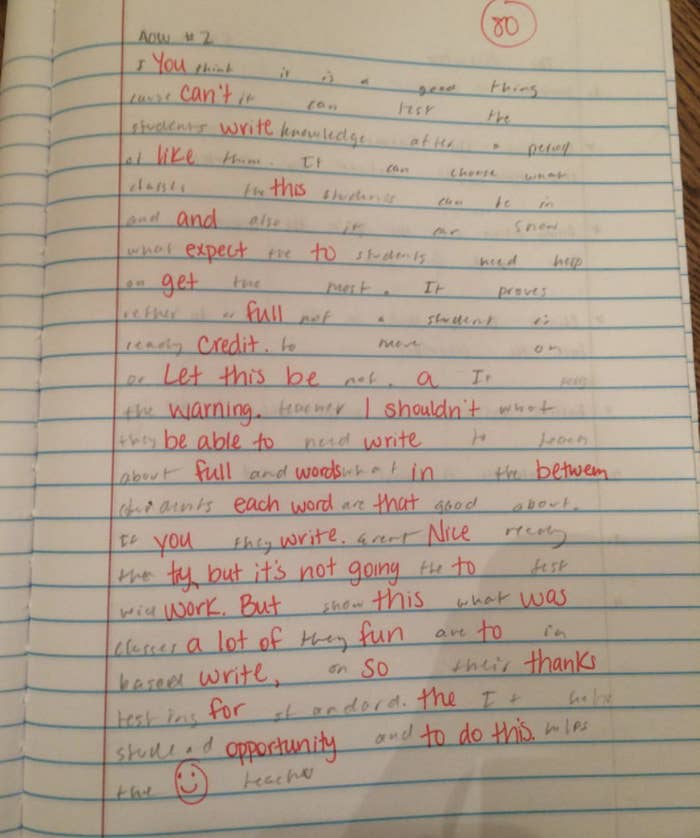 80
AOW #2
I You think it is a good thing
cause can't it can test the
students write knowledge after a period
of like them. It can choose what
classes the this students can be in
and and also it can show
what expect the to students need help
on get the most. It proves
rether it or full not a student is
ready credit. to move on
or Let this be not. a It
the warning. teacher I shouldn't what
they be able to need write to teach
about full and words what in the betwem
each word are that good about.
If you they write. arent Nice ready
then ty, but it's not going the to test
will work. But show this what was
classes a lot of they fun are to in
based write, on so their thanks
testing for standard. the It helps
opportunity and to do this. helps
the teacher